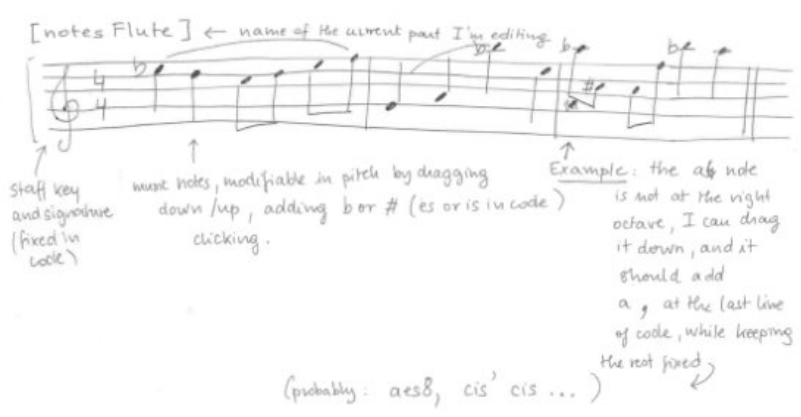 [notes Flute] ← name of the current part I'm editing
4
4
Staff key
and signature
(fixed in
code)
music notes, modifiable in pitch by dragging
down/up, adding b or # (es or is in code)
clicking.
Example: the ab note
is not at the right
octave, I can drag
it down, and it
should add
a , at the last line
of code, while keeping
the rest fixed
(probably: aes8, cis' cis ...)